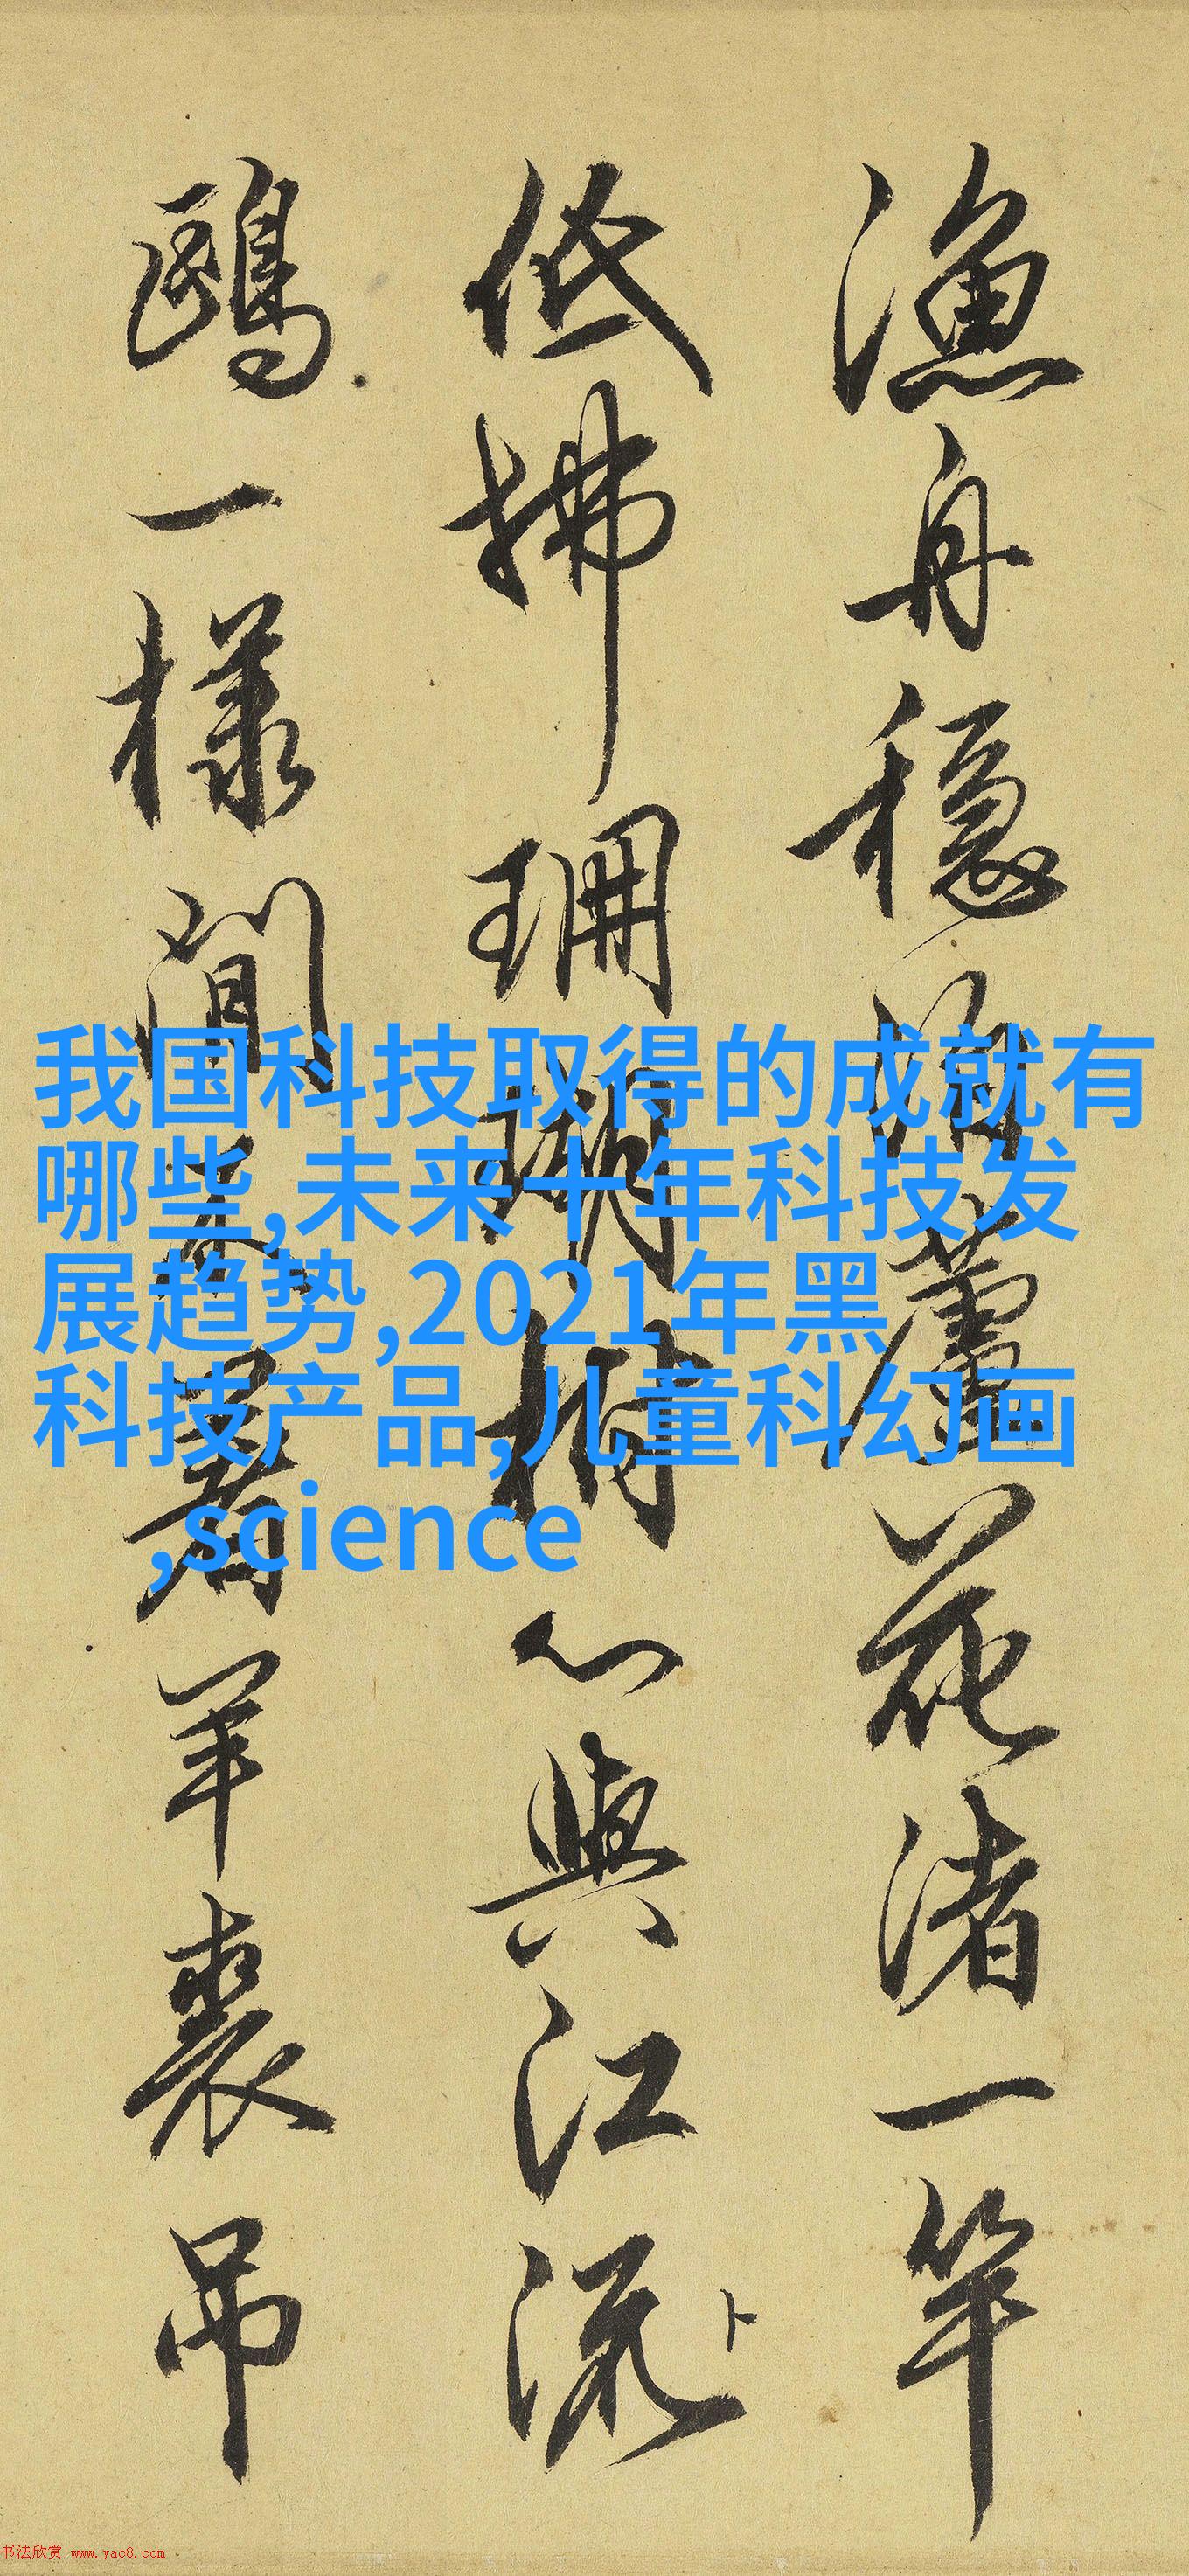 漁舟穩泊蘆花渚一竿
低拂珊瑚樹心與江流卜
鷗一樣閒著羊裘吊
我国科技取得的成就有
哪些,未来十年科技发
展趋势,2021年黑
科技产品,儿童科幻画
,science
书法欣赏 www.yac8.com